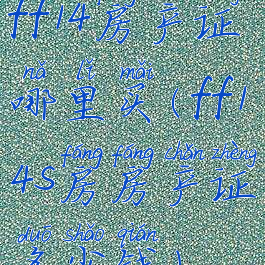 ff14房产证
nǎ lǐ mǎi
哪里买(ff1
fáng fáng chǎn zhèng
4s房房产证
duō shǎo qián
多少钱)